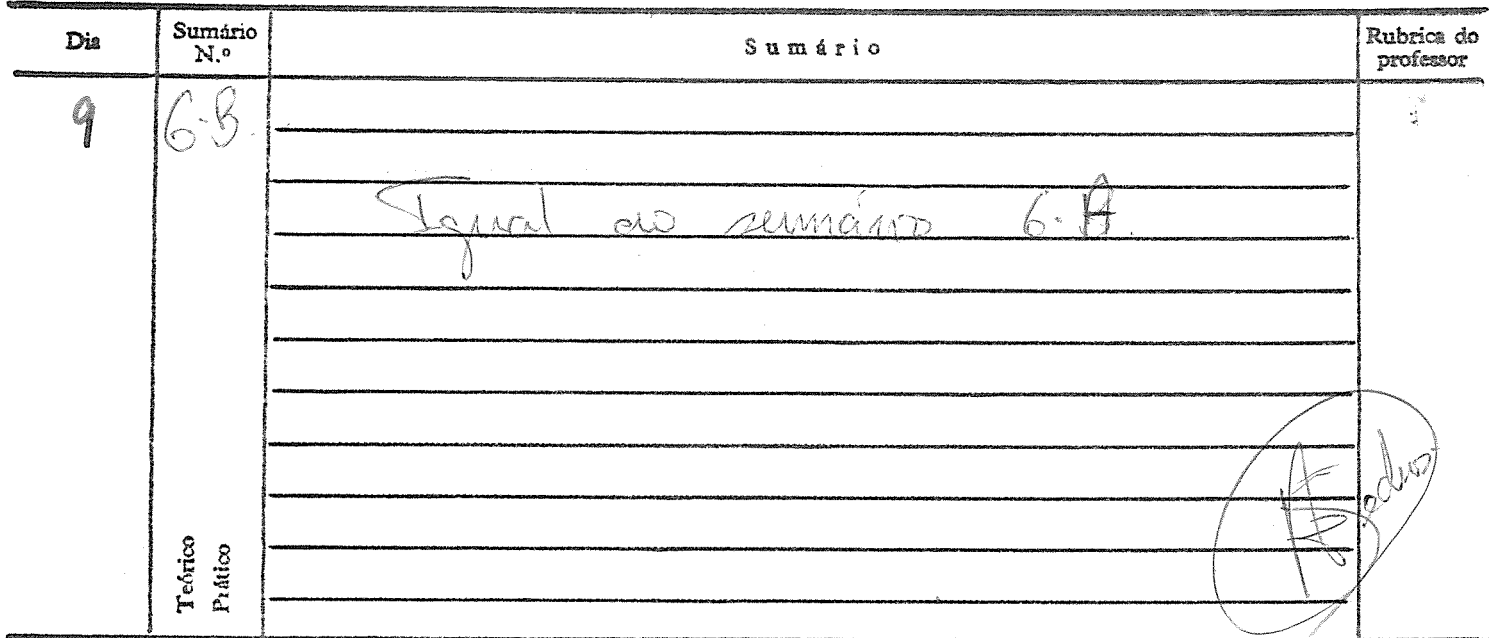 Dia Sumário N.º Sumário Rubrica do professor
9 6-B.
Igual ao sumário 6-A.
Teórico
Prático